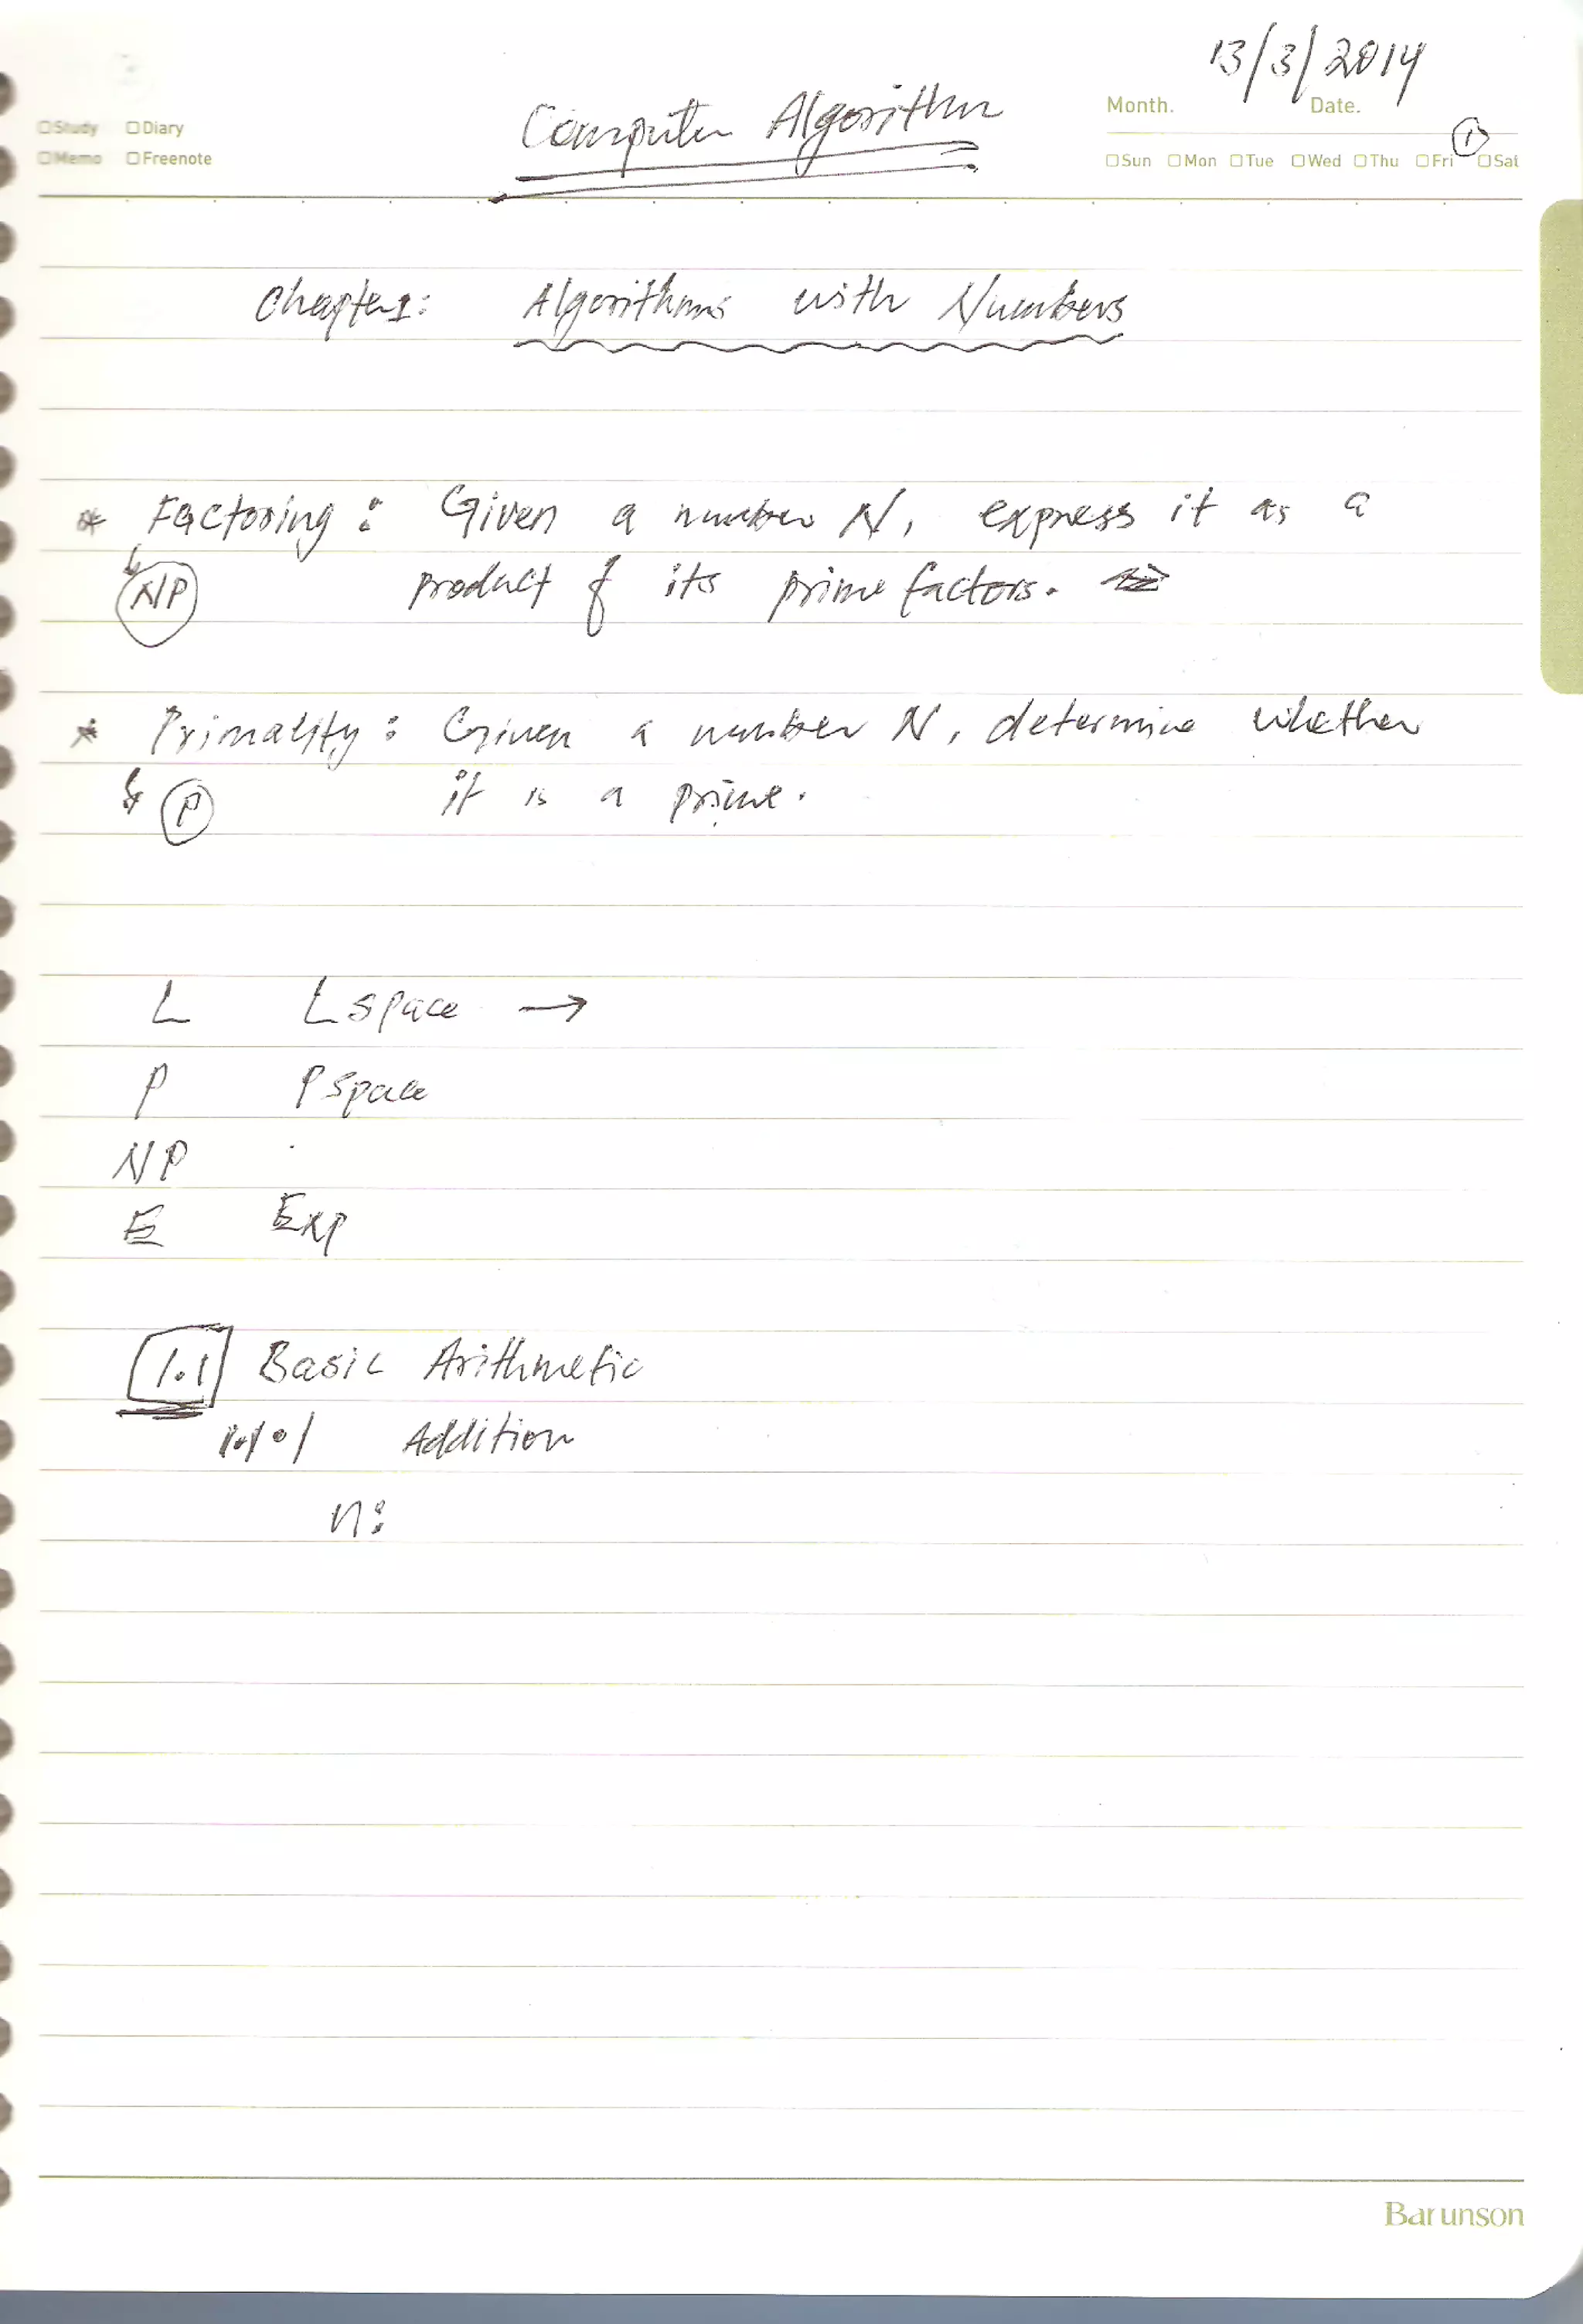 13/3/2014
Computer Algorithm
Month. Date.
□Study □Diary
□Memo □Freenote
①
□Sun □Mon □Tue □Wed □Thu □Fri □Sat
Chapter1: Algorithms with Numbers
* Factoring: Given a number N, express it as a
↳ NP product of its prime factors.
* Primality: Given a number N, determine whether
↳ P it is a prime.
L Lspace →
P Pspace
NP
E Exp
1.1 Basic Arithmetic
1.1.1 Addition
n:
Barunson